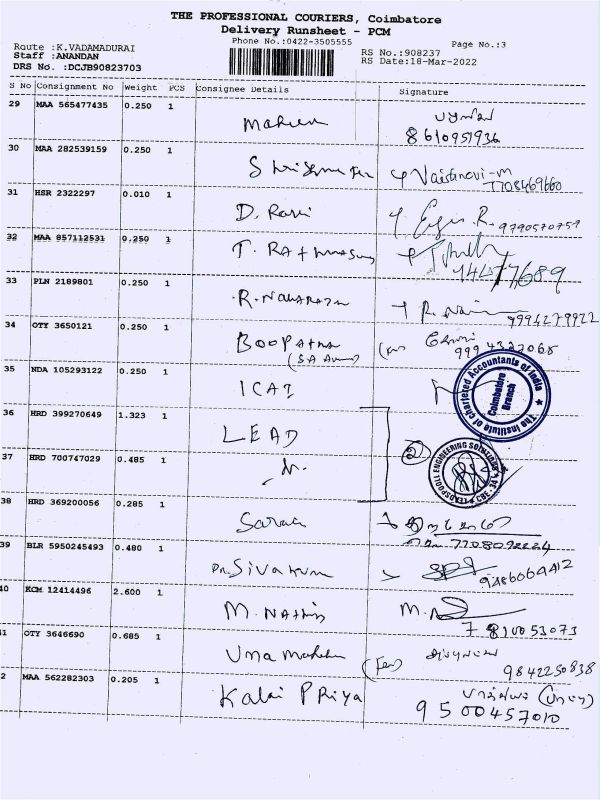 THE PROFESSIONAL COURIERS, Coimbatore
Delivery Runsheet - PCM
Phone No.:0422-3505555
Page No.:3
Route :K.VADAMADURAI
Staff :ANANDAN
DRS No. :DCJB90823703
RS No.:908237
RS Date:18-Mar-2022
S No Consignment No Weight PCS Consignee Details Signature
29 MAA 565477435 0.250 1
8610951936
30 MAA 282539159 0.250 1 Vaishnavi-m
7708469660
31 HSR 2322297 0.010 1 D. Ravi R. 9790570759
32 MAA 857112531 0.250 1 T.
33 PLN 2189801 0.250 1 R. R.
9994279922
34 OTY 3650121 0.250 1 BOOPATHI
35 NDA 105293122 0.250 1 ICAI
The Institute of Chartered Accountants of India
Coimbatore Branch
36 HRD 399270649 1.323 1 LEAD
37 HRD 700747029 0.485 1 2
ENGINEERING SOLUTIONS
CBE-34
38 HRD 369200056 0.285 1
7708092224
39 BLR 5950245493 0.480 1 Sivakumar
9486064412
40 KCM 12414496 2.600 1 M. M.
7810053073
41 OTY 3646690 0.685 1 Uma
9842250838
42 MAA 562282303 0.205 1 Kalai PRiya
9500457010